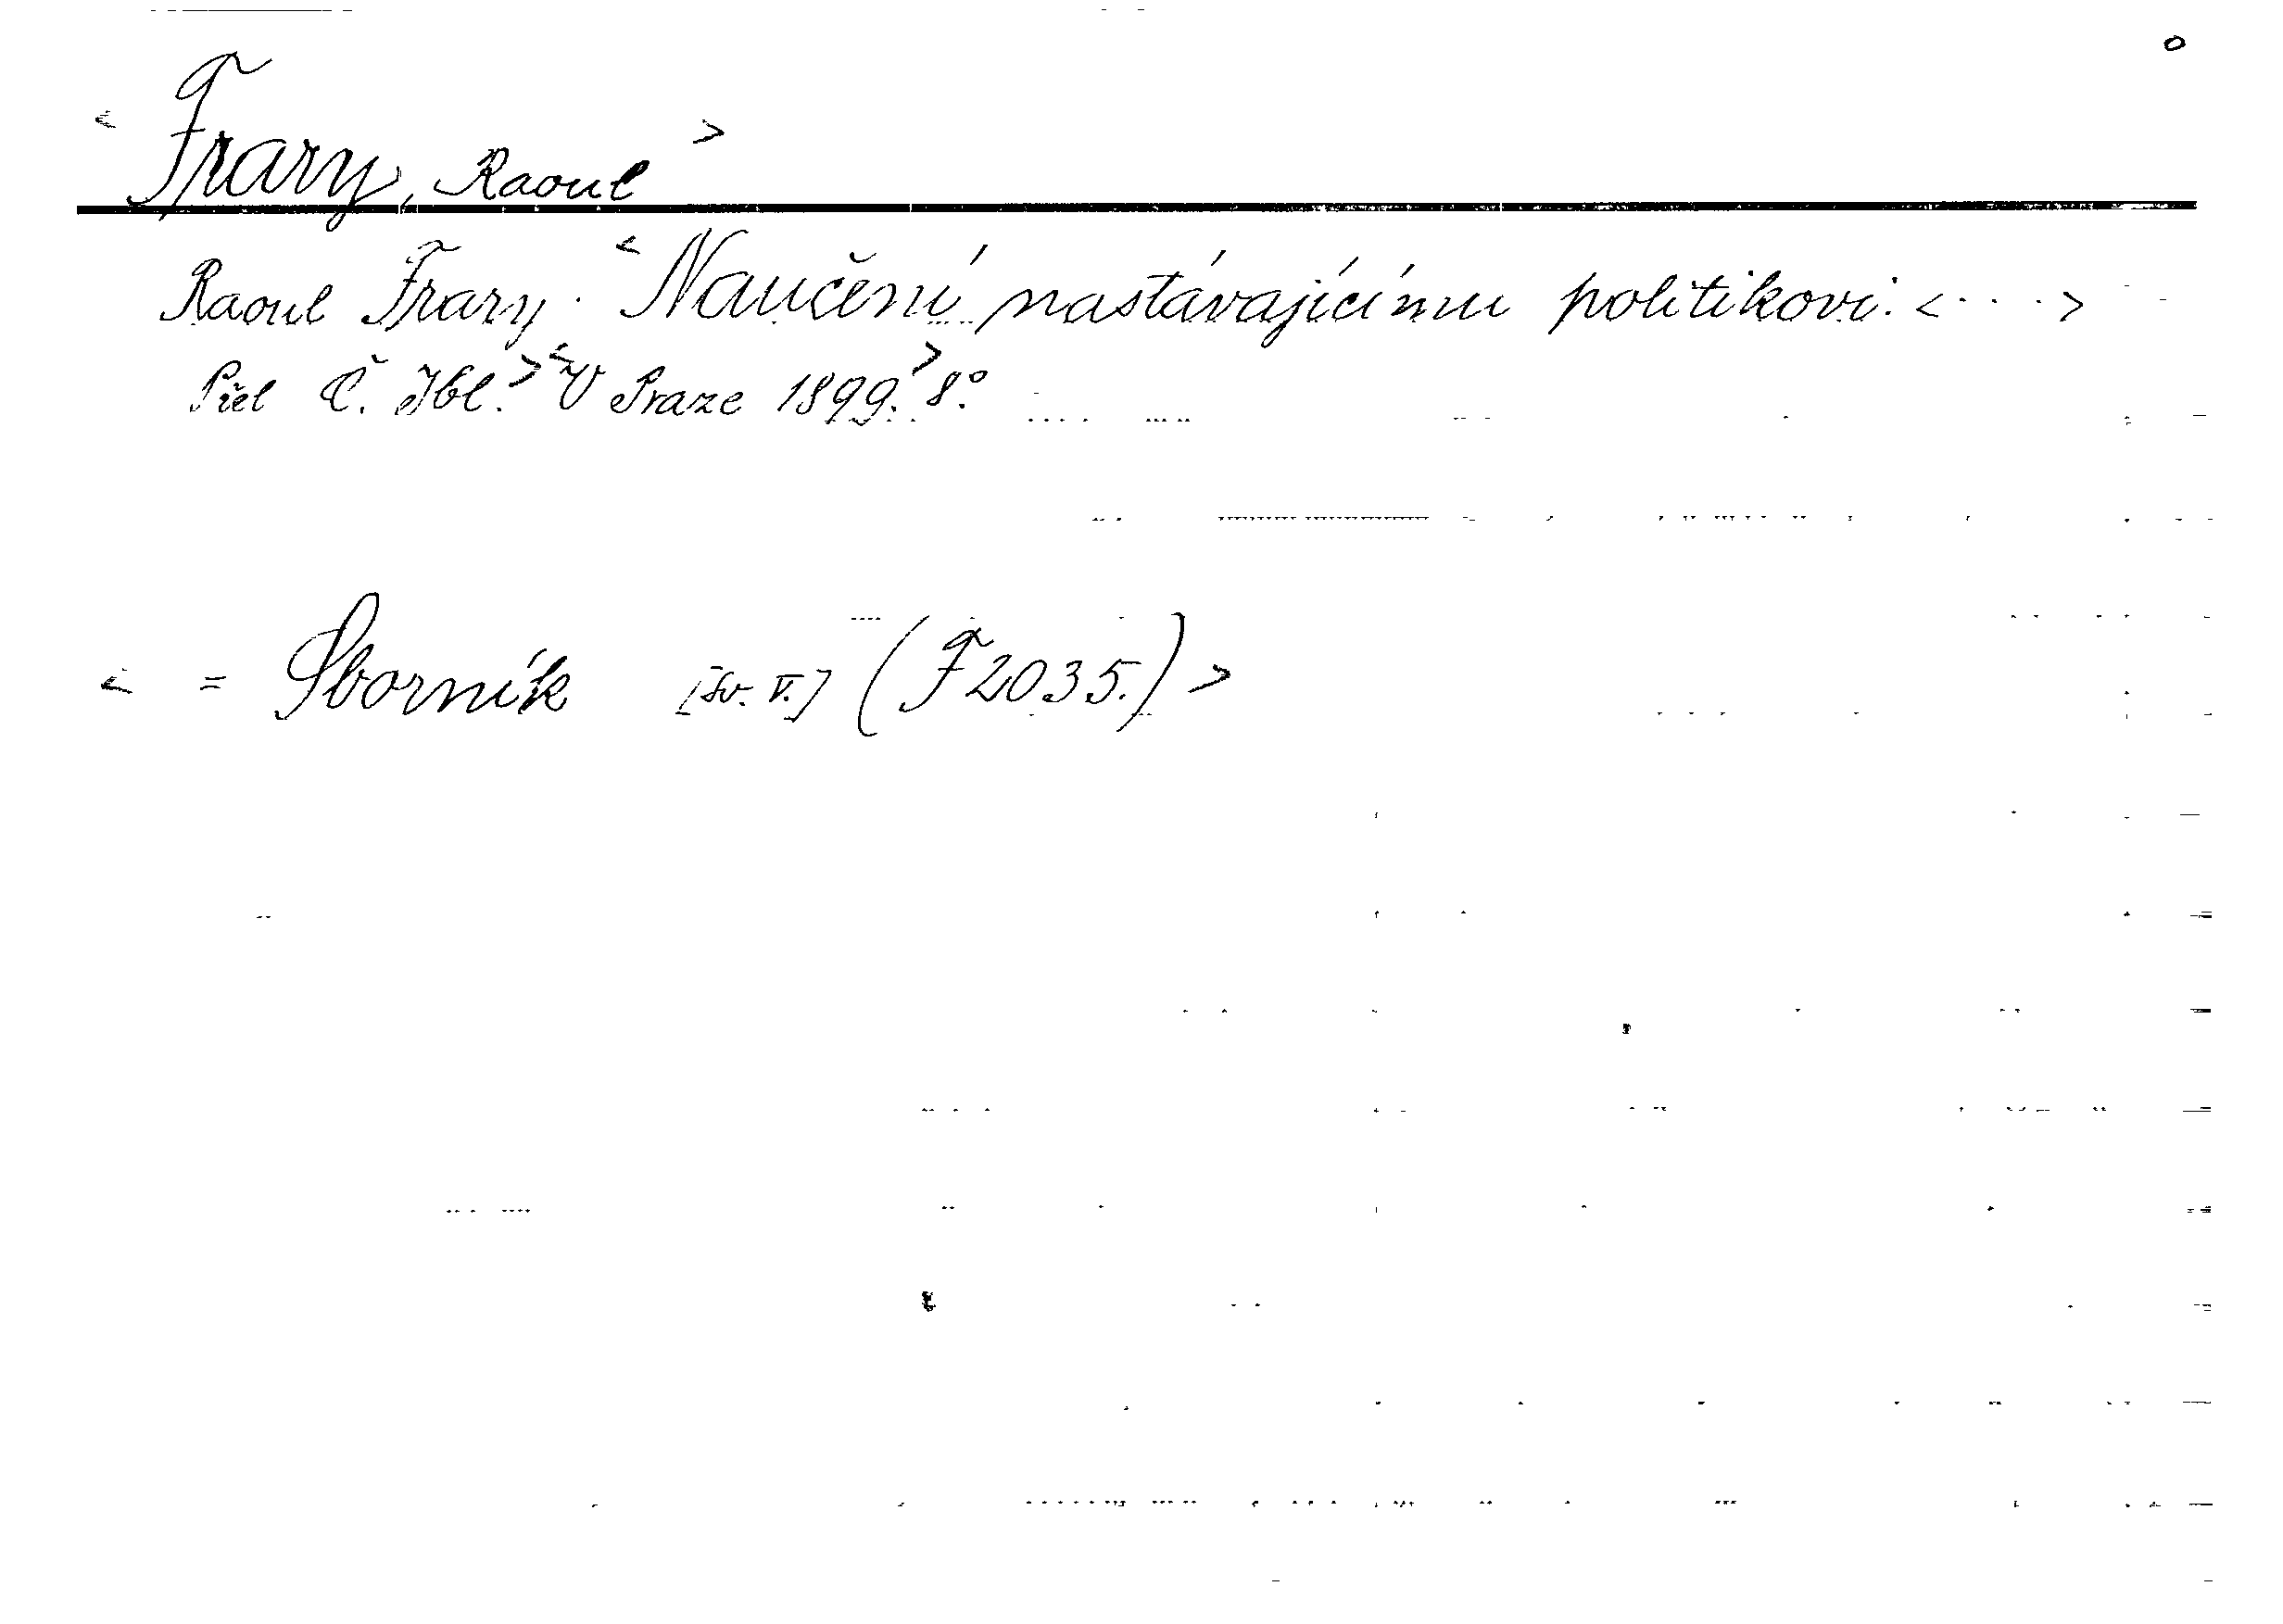 o
< Frary, Raoul >
Raoul Frary. < Naučení nastávajícímu politikovi. <...>
Přel Č. Ibl. > < V Praze 1899. > 8.°
< = Sborník [Sv. V.] (F 2035.) >